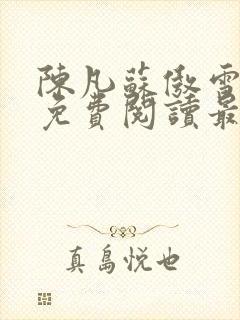 陳凡蘇傲雪
免費閱讀最
真島悦也